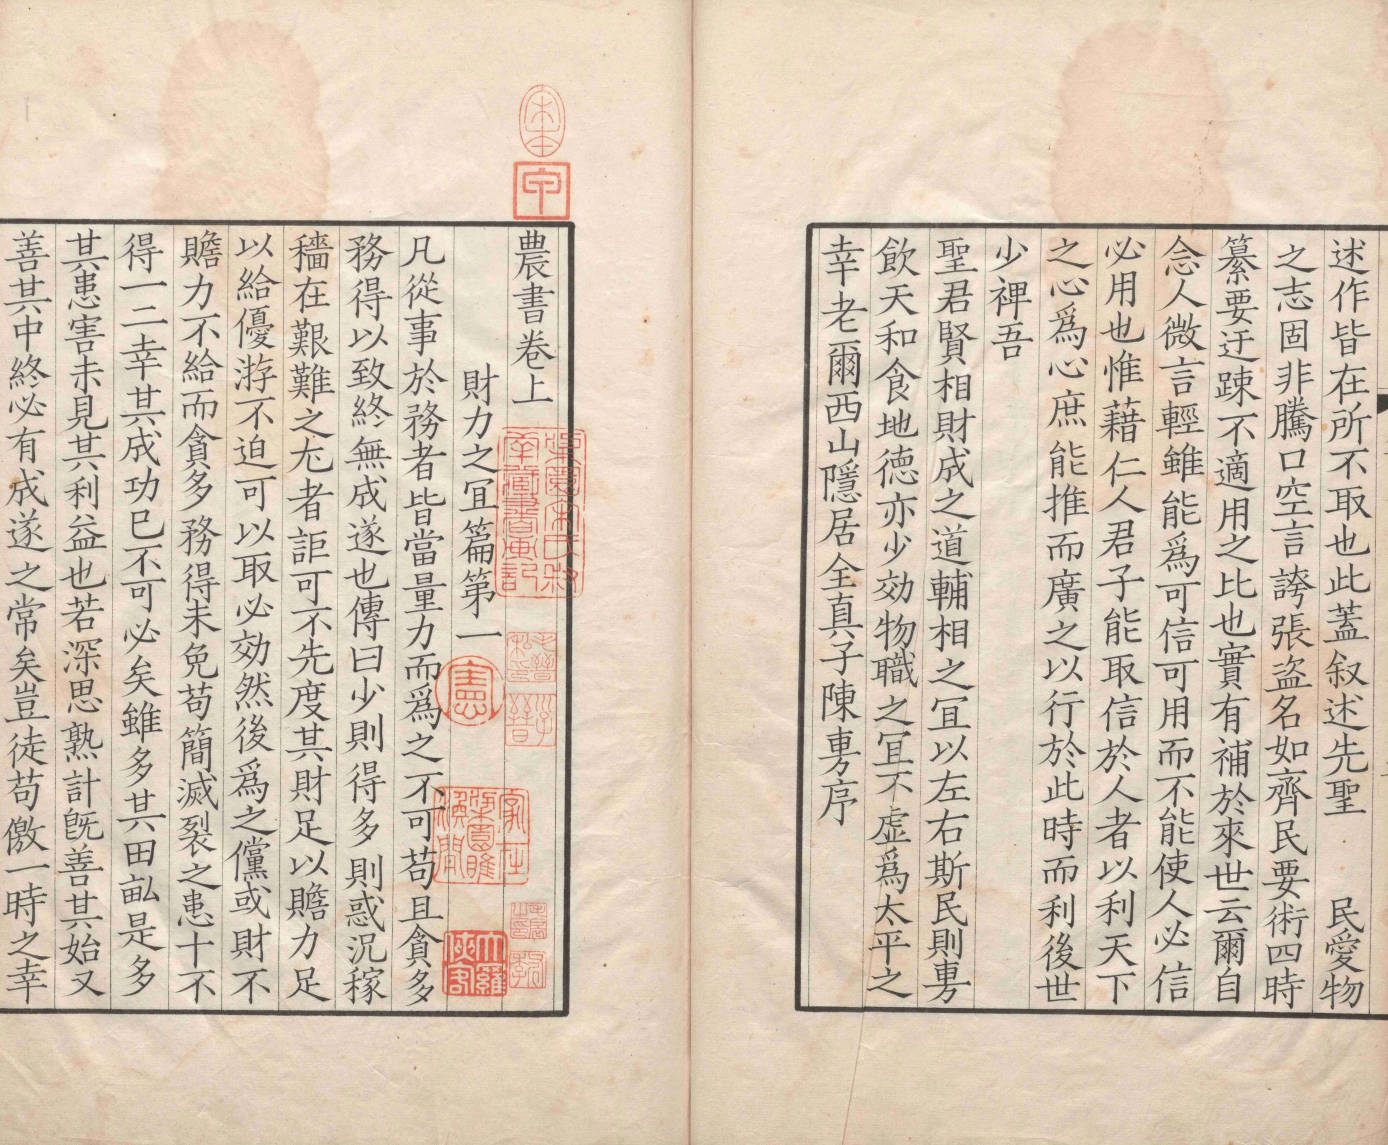 述作皆在所不取也此蓋叙述先聖　民愛物
之志固非騰口空言誇張盗名如齊民要術四時
纂要迂踈不適用之比也實有補於來世云爾自
念人微言輕雖能爲可信可用而不能使人必信
必用也惟藉仁人君子能取信於人者以利天下
之心爲心庶能推而廣之以行於此時而利後世
少裨吾
聖君賢相財成之道輔相之宜以左右斯民則旉
飲天和食地徳亦少効物職之宜不虚爲太平之
幸老爾西山隱居全真子陳旉序
農書卷上
財力之宜篇第一
凡從事於務者皆當量力而爲之不可苟且貪多
務得以致終無成遂也傳曰少則得多則惑況稼
穡在艱難之尤者詎可不先度其財足以贍力足
以給優游不迫可以取必効然後爲之儻或財不
贍力不給而貪多務得未免苟簡滅裂之患十不
得一二幸其成功已不可必矣雖多其田畝是多
其患害未見其利益也若深思熟計旣善其始又
善其中終必有成遂之常矣豈徒苟儌一時之幸
宋本
甲
憲
大羅
俠客